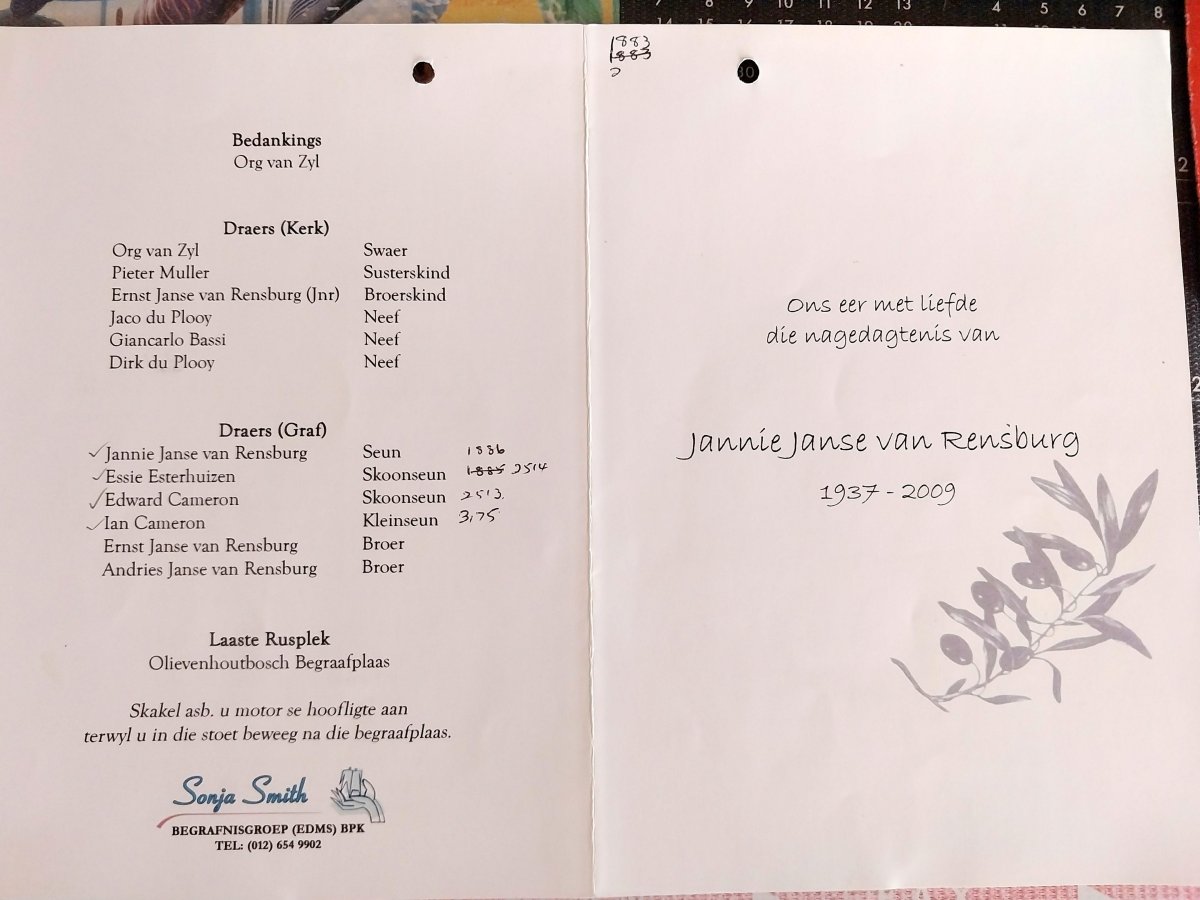 Bedankings
Org van Zyl
Draers (Kerk)
Org van Zyl Swaer
Pieter Muller Susterskind
Ernst Janse van Rensburg (Jnr) Broerskind
Jaco du Plooy Neef
Giancarlo Bassi Neef
Dirk du Plooy Neef
Draers (Graf)
Jannie Janse van Rensburg Seun 1886
Essie Esterhuizen Skoonseun 1885 2514
Edward Cameron Skoonseun 2513
Ian Cameron Kleinseun 3175
Ernst Janse van Rensburg Broer
Andries Janse van Rensburg Broer
Laaste Rusplek
Olievenhoutbosch Begraafplaas
Skakel asb. u motor se hoofligte aan
terwyl u in die stoet beweeg na die begraafplaas.
Sonja Smith
BEGRAFNISGROEP (EDMS) BPK
TEL: (012) 654 9902
1883
1883
Ons eer met liefde
die nagedagtenis van
Jannie Janse van Rensburg
1937 - 2009
7 8 9 10 11 12 13
4 5 6 7 8